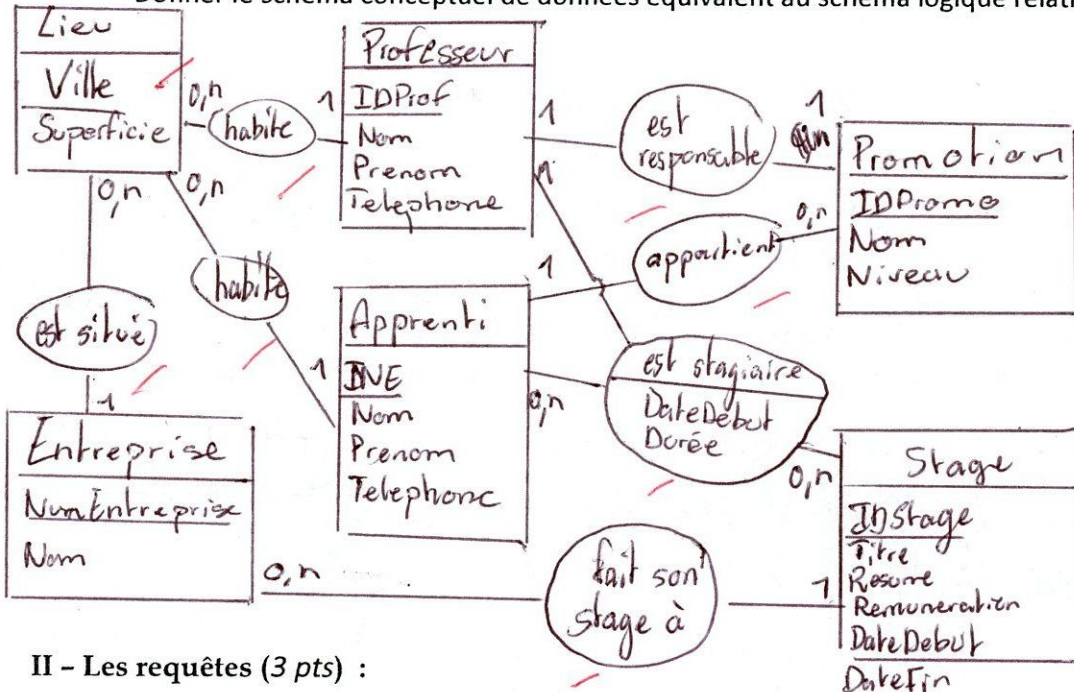 Donner le schéma conceptuel de données équivalent au schéma logique
Lieu
Ville
Superficie
0,n
habite
1
Professeur
IDProf
Nom
Prenom
Telephone
1
est
responsable
1
Promotion
IDPromo
Nom
Niveau
0,n
0,n
habite
1
1
appartient
0,n
1
est situé
1
Apprenti
INE
Nom
Prenom
Telephone
0,n
est stagiaire
DateDébut
Durée
0,n
Entreprise
NumEntreprise
Nom
0,n
fait son
stage à
1
Stage
IDStage
Titre
Resume
Remuneration
DateDebut
DateFin
II – Les requêtes (3 pts) :